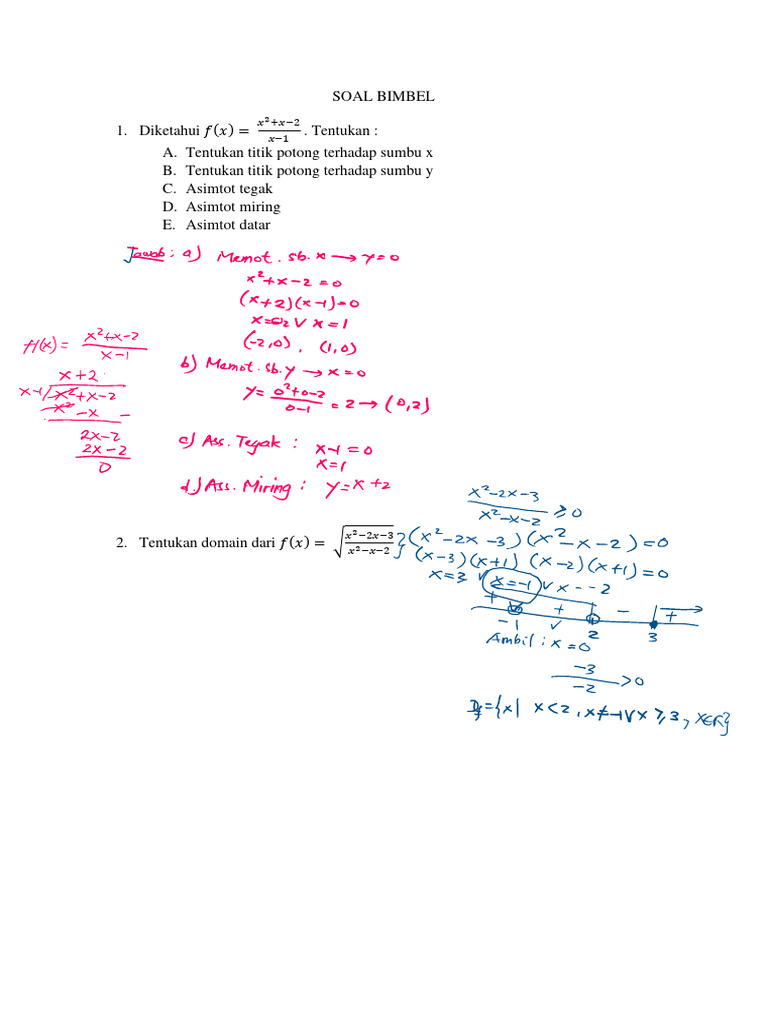 SOAL BIMBEL
1. Diketahui f(x) = (x²+x−2)/(x−1) . Tentukan :
A. Tentukan titik potong terhadap sumbu x
B. Tentukan titik potong terhadap sumbu y
C. Asimtot tegak
D. Asimtot miring
E. Asimtot datar
Jawab : a) Memot. sb. x → y=0
x²+x−2=0
(x+2)(x−1)=0
x=−2 V x=1
(−2,0) , (1,0)
f(x) = (x²+x−2)/(x−1)
x+2
x−1/x²+x−2
x²−x −
2x−2
2x−2
0
b) Memot. sb. y → x=0
y= (0²+0−2)/(0−1) = 2 → (0,2)
c) Ass. Tegak : x−1=0
x=1
d.) Ass. Miring : y=x+2
2. Tentukan domain dari f(x) = √((x²−2x−3)/(x²−x−2))
(x²−2x−3)/(x²−x−2) ≥ 0
(x²−2x−3)(x²−x−2)=0
(x−3)(x+1) (x−2)(x+1)=0
x=3 v x=−1 v x=−2
+ + − +
−1 v 2 3
Ambil : x=0
−3/−2 >0
Df={x| x<2, x≠−1 V x≥3, x∈R}